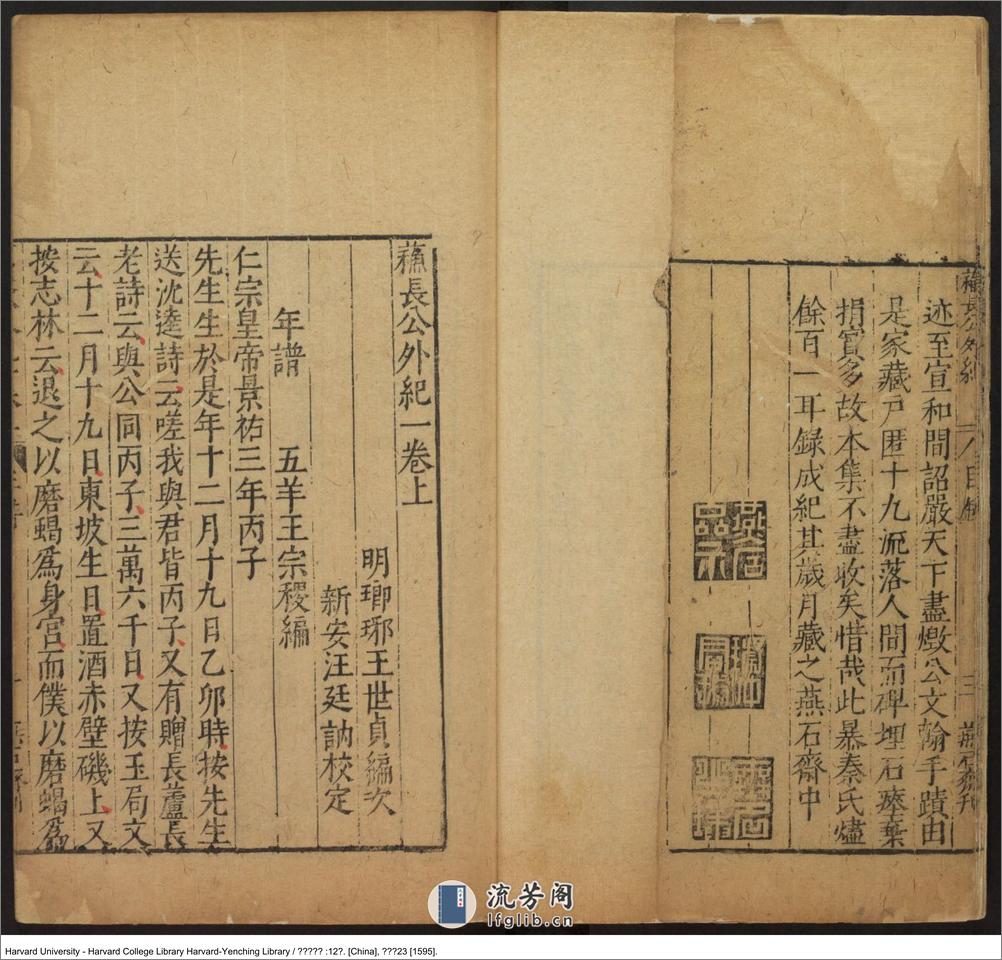 迹至宣和間詔嚴天下盡燬公文翰手蹟由
是家藏戸匿十九流落人間而碑埋石瘞棄
捐實多故本集不盡收矣惜哉此暴秦氏燼
餘百一耳錄成紀其歲月藏之燕石齋中
蘓長公外紀
三
蘓長公外紀一卷上
明瑯琊王世貞編次
新安汪廷訥校定
年譜 五羊王宗稷編
仁宗皇帝景祐三年丙子
先生生於是年十二月十九日乙卯時按先生
送沈逵詩云嗟我與君皆丙子又有贈長蘆長
老詩云與公同丙子三萬六千日又按玉局文
云十二月十九日東坡生日置酒赤壁磯上又
按志林云退之以磨蝎爲身宮而僕以磨蝎爲
流芳阁
lfglib.cn
Harvard University - Harvard College Library Harvard-Yenching Library / ????? :12?. [China], ???23 [1595].